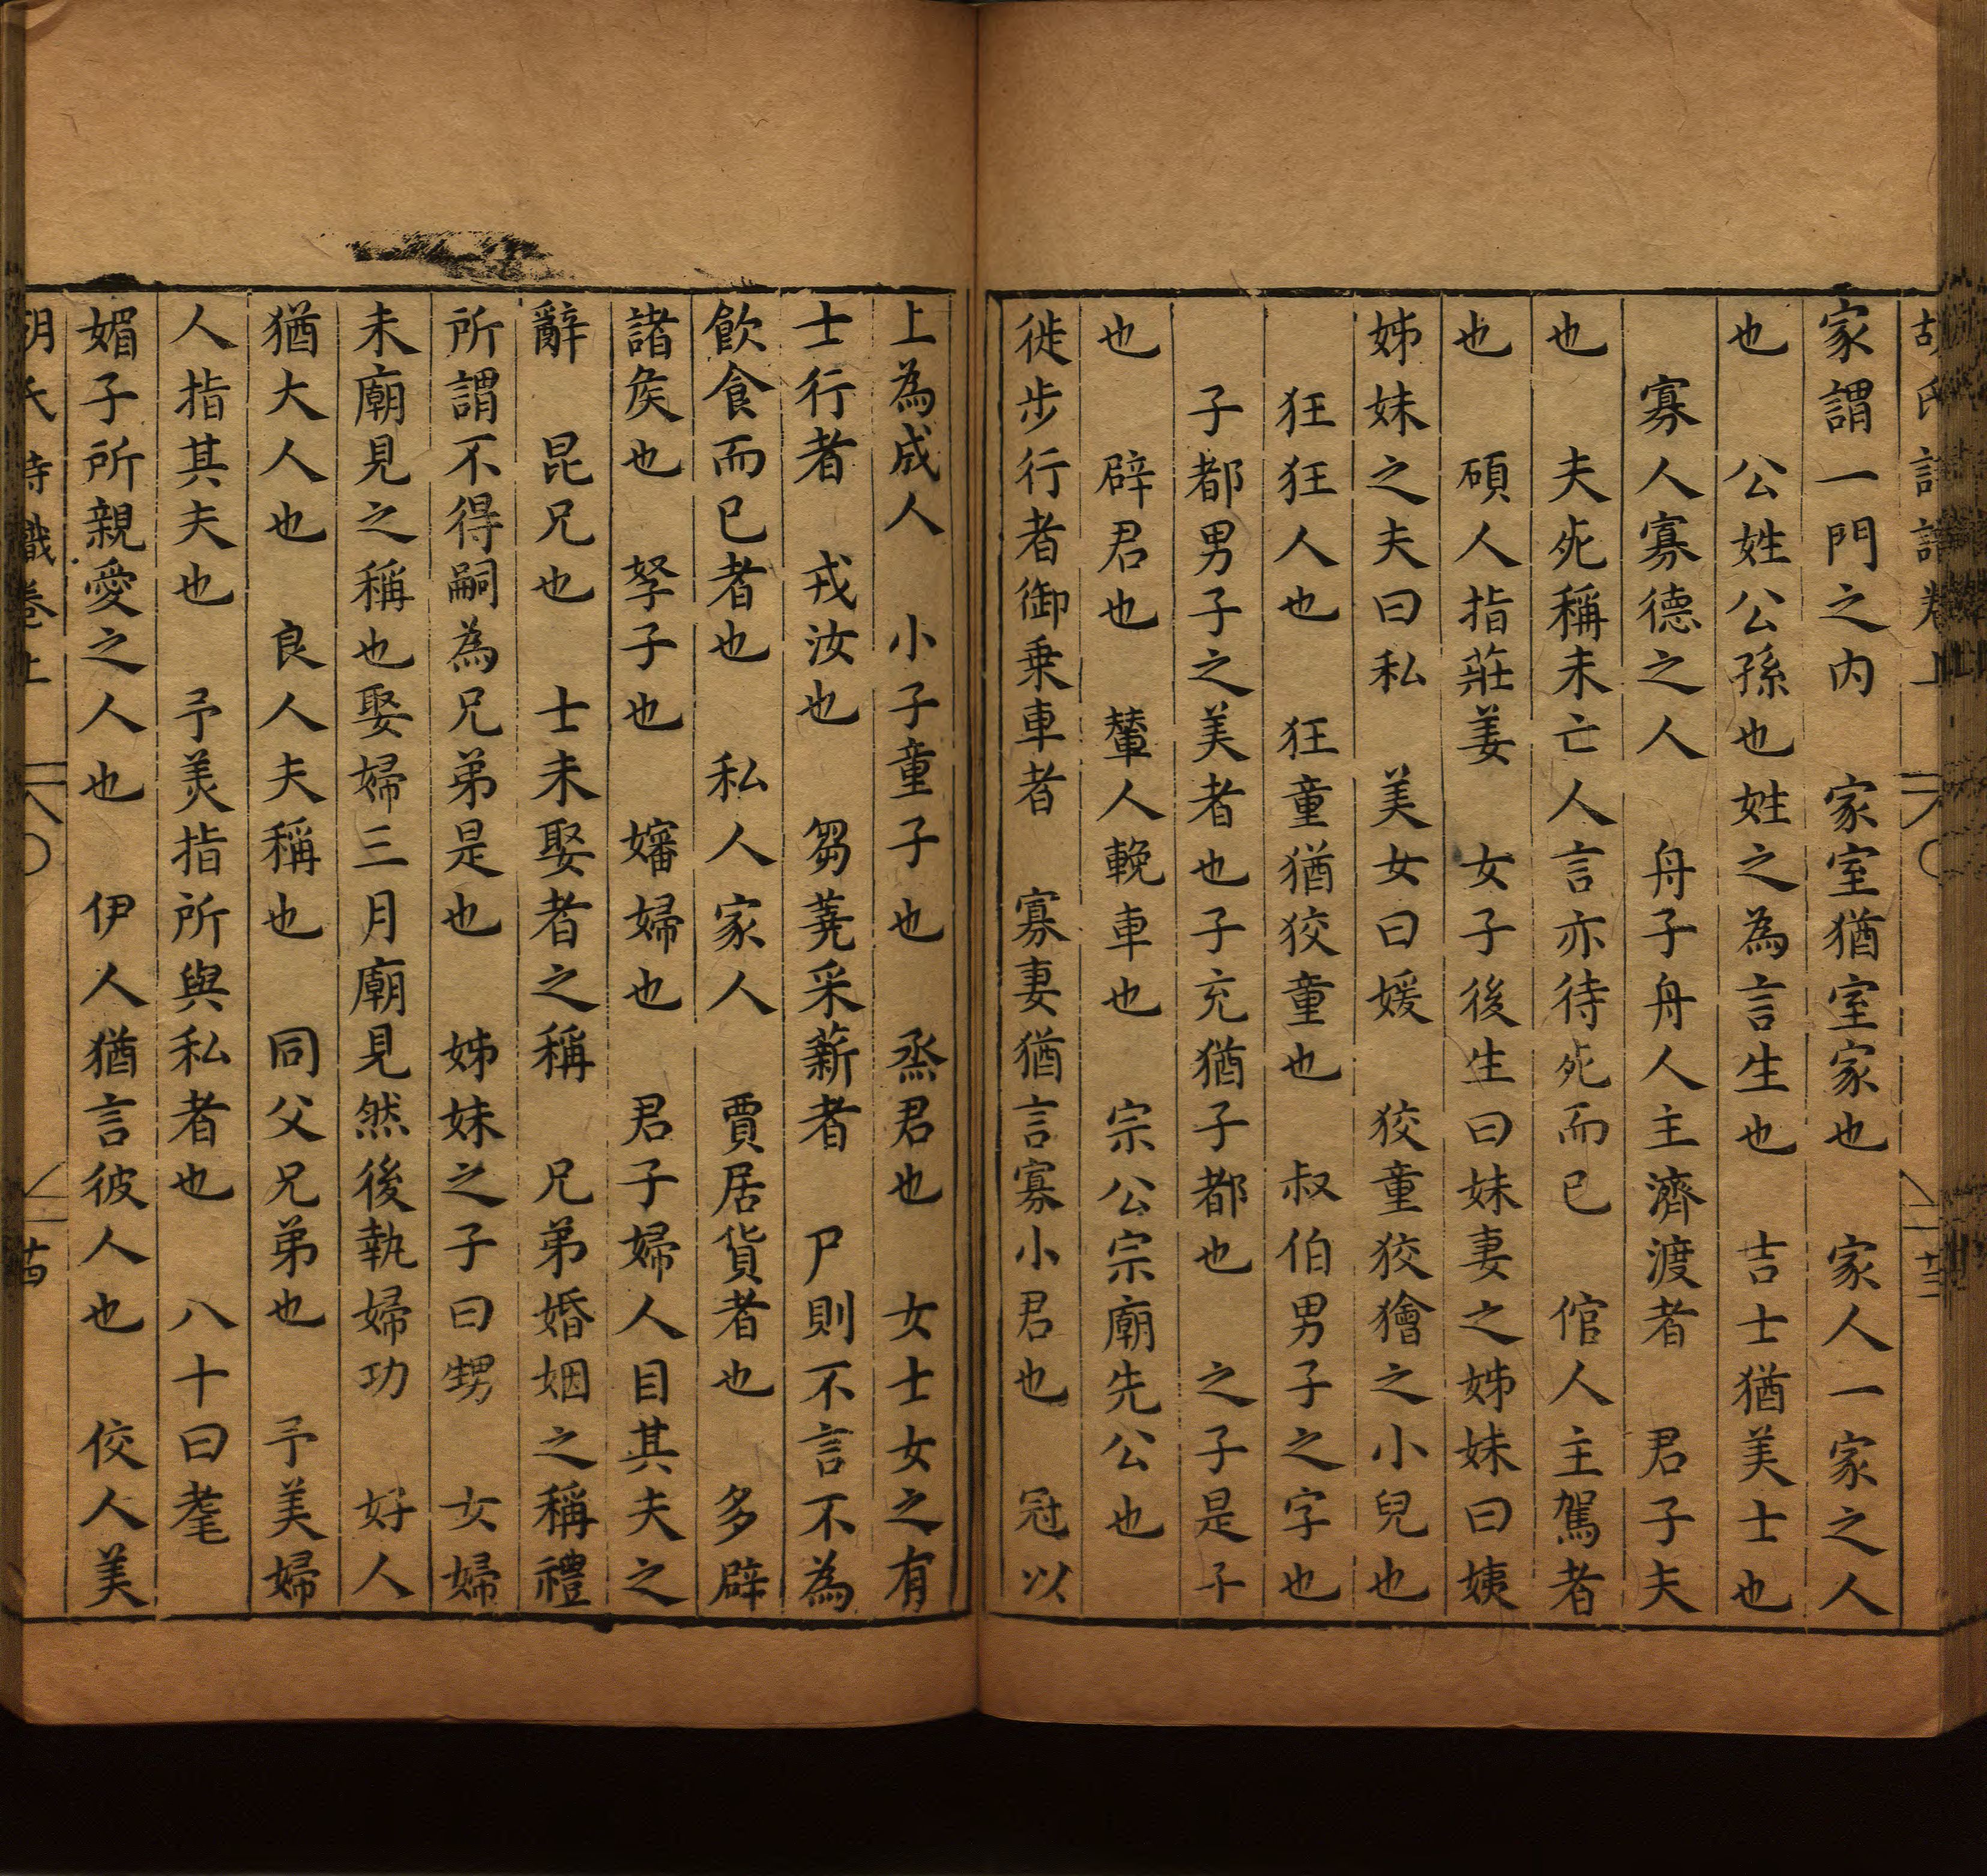 家謂一門之内　家室猶室家也　家人一家之人
也　公姓公孫也姓之為言生也　吉士猶美士也
寡人寡德之人　舟子舟人主濟渡者　君子夫
也　夫死稱未亡人言亦待死而已　倌人主駕者
也　碩人指莊姜　女子後生曰妹妻之姊妹曰姨
姊妹之夫曰私　美女曰媛　狡童狡獪之小兒也
狂狂人也　狂童猶狡童也　叔伯男子之字也
子都男子之美者也子充猶子都也　之子是子
也　辟君也　輦人輓車也　宗公宗廟先公也
徙步行者御乗車者　寡妻猶言寡小君也　冠以
上為成人　小子童子也　烝君也　女士女之有
士行者　戎汝也　芻蕘采薪者　尸則不言不為
飲食而已者也　私人家人　賈居貨者也　多辟
諸矦也　孥子也　嬸婦也　君子婦人目其夫之
辭　昆兄也　士未娶者之稱　兄弟婚姻之稱禮
所謂不得嗣為兄弟是也　姊妹之子曰甥　女婦
未廟見之稱也娶婦三月廟見然後執婦功　好人
猶大人也　良人夫稱也　同父兄弟也　予美婦
人指其夫也　予美指所與私者也　八十曰耄
媚子所親愛之人也　伊人猶言彼人也　佼人美
胡氏詩識卷上　十四